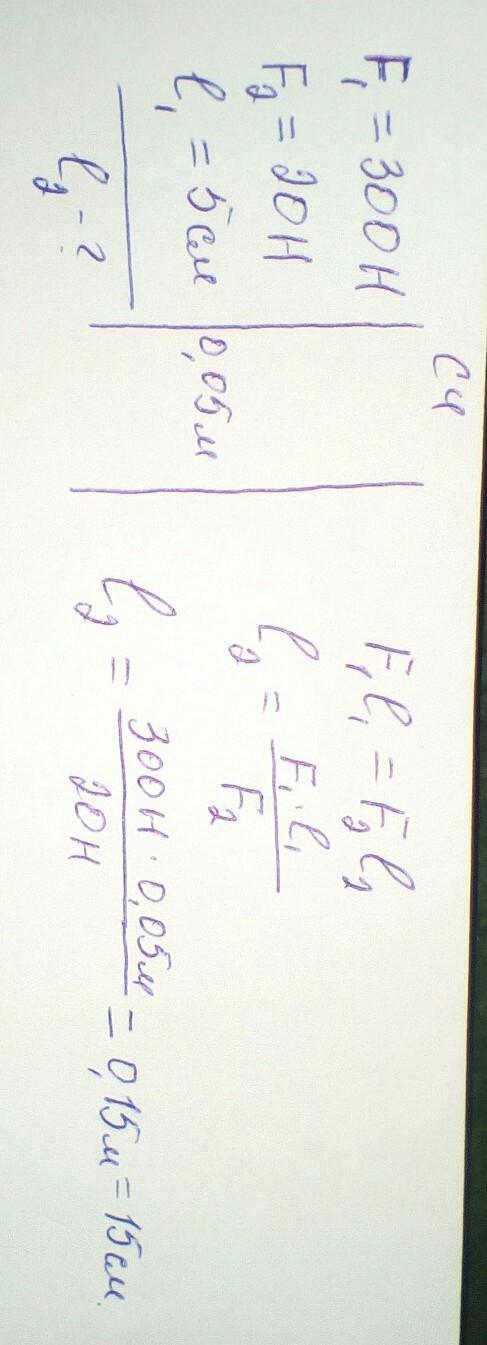 F₁ = 300Н
F₂ = 20Н
l₁ = 5см
l₂ - ?
Си
0,05м
F₁l₁ = F₂l₂
l₂ = F₁·l₁ / F₂
l₂ = 300Н · 0,05м / 20Н = 0,15м = 15см.